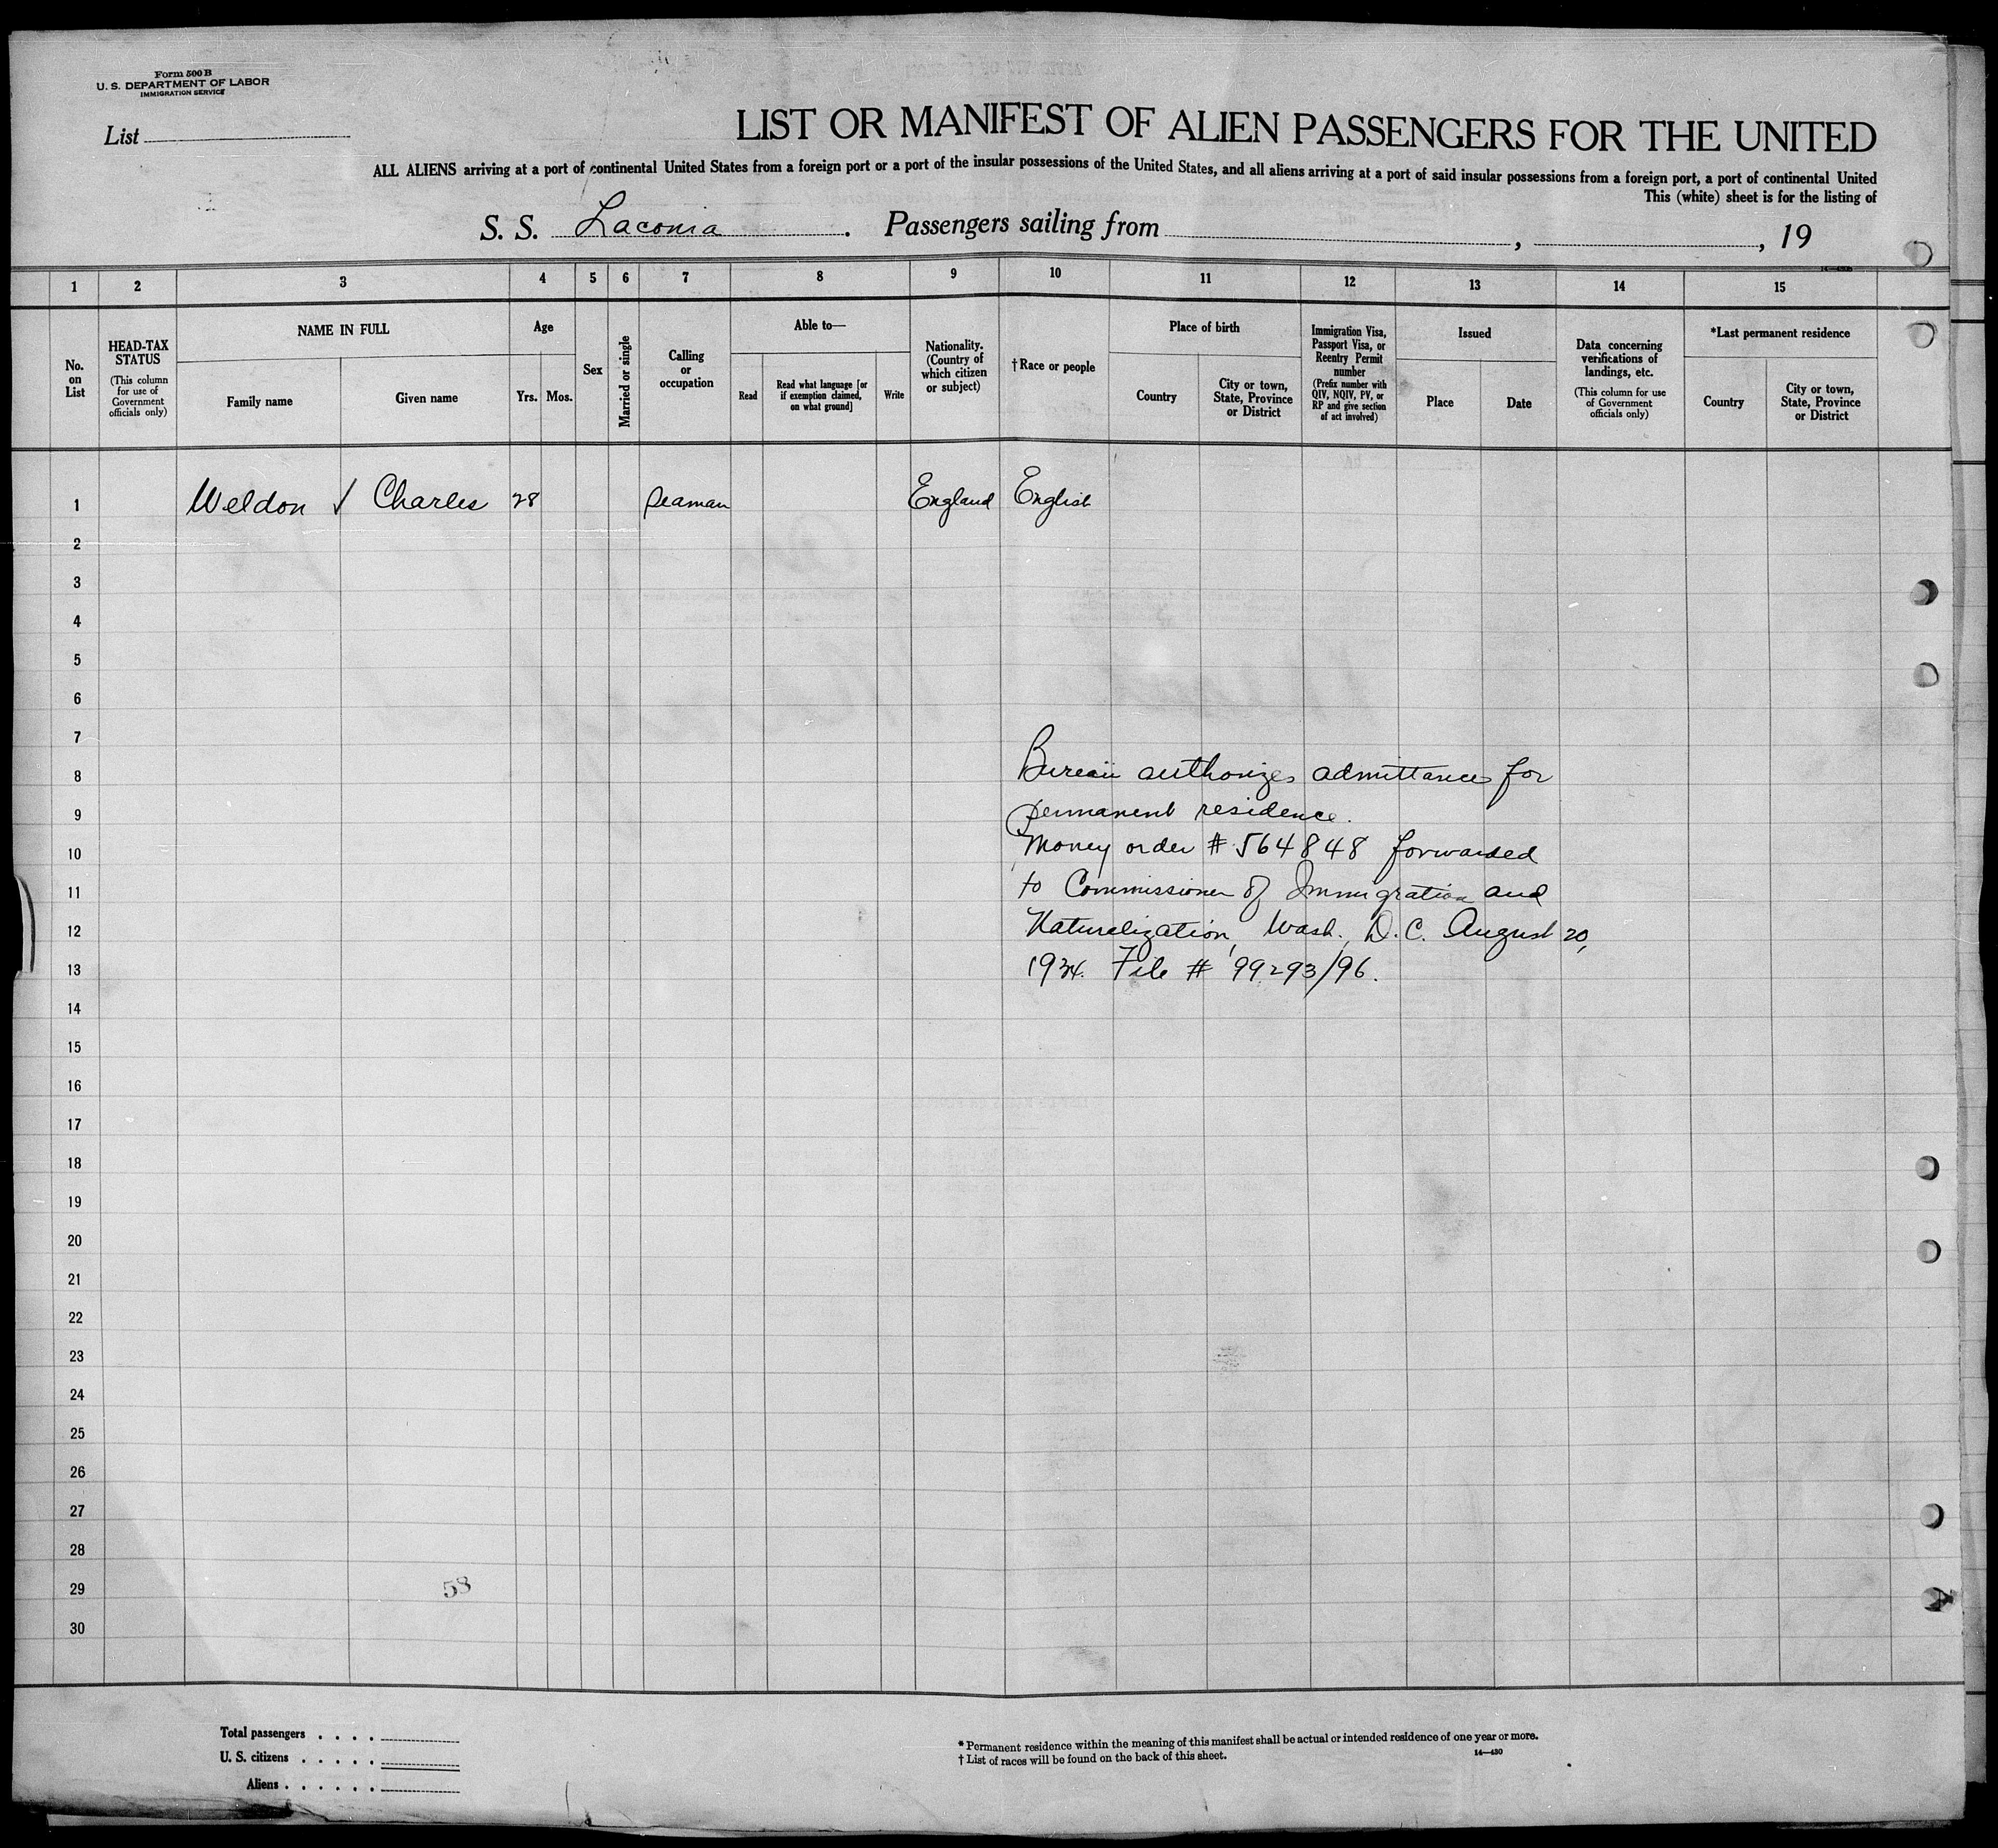 Form 500 B
U. S. DEPARTMENT OF LABOR
IMMIGRATION SERVICE
List
LIST OR MANIFEST OF ALIEN PASSENGERS FOR THE UNITED
ALL ALIENS arriving at a port of continental United States from a foreign port or a port of the insular possessions of the United States, and all aliens arriving at a port of said insular possessions from a foreign port, a port of continental United
This (white) sheet is for the listing of
S. S. Laconia. Passengers sailing from , , 19
1 2 3 4 5 6 7 8 9 10 11 12 13 14 15
No. on List
HEAD-TAX STATUS
(This column for use of Government officials only)
NAME IN FULL
Family name
Given name
Age
Yrs. Mos.
Sex
Married or single
Calling or occupation
Able to—
Read
Read what language [or if exemption claimed, on what ground]
Write
Nationality. (Country of which citizen or subject)
† Race or people
Place of birth
Country
City or town, State, Province or District
Immigration Visa, Passport Visa, or Reentry Permit number
(Prefix number with QIV, NQIV, PV, or RP and give section of act involved)
Issued
Place
Date
Data concerning verifications of landings, etc.
(This column for use of Government officials only)
*Last permanent residence
Country
City or town, State, Province or District
1 Weldon ✓ Charles 28 Seaman England English
2
3
4
5
6
7
8 Bureau authorizes admittance for
9 permanent residence.
10 Money order # 564848 forwarded
11 to Commissioner of Immigration and
12 Naturalization, Wash. D.C. August 20,
13 1934. File # 99293/96.
14
15
16
17
18
19
20
21
22
23
24
25
26
27
28
29 58
30
Total passengers . . . .
U. S. citizens . . . . .
Aliens . . . . . .
* Permanent residence within the meaning of this manifest shall be actual or intended residence of one year or more.
† List of races will be found on the back of this sheet.
14—430